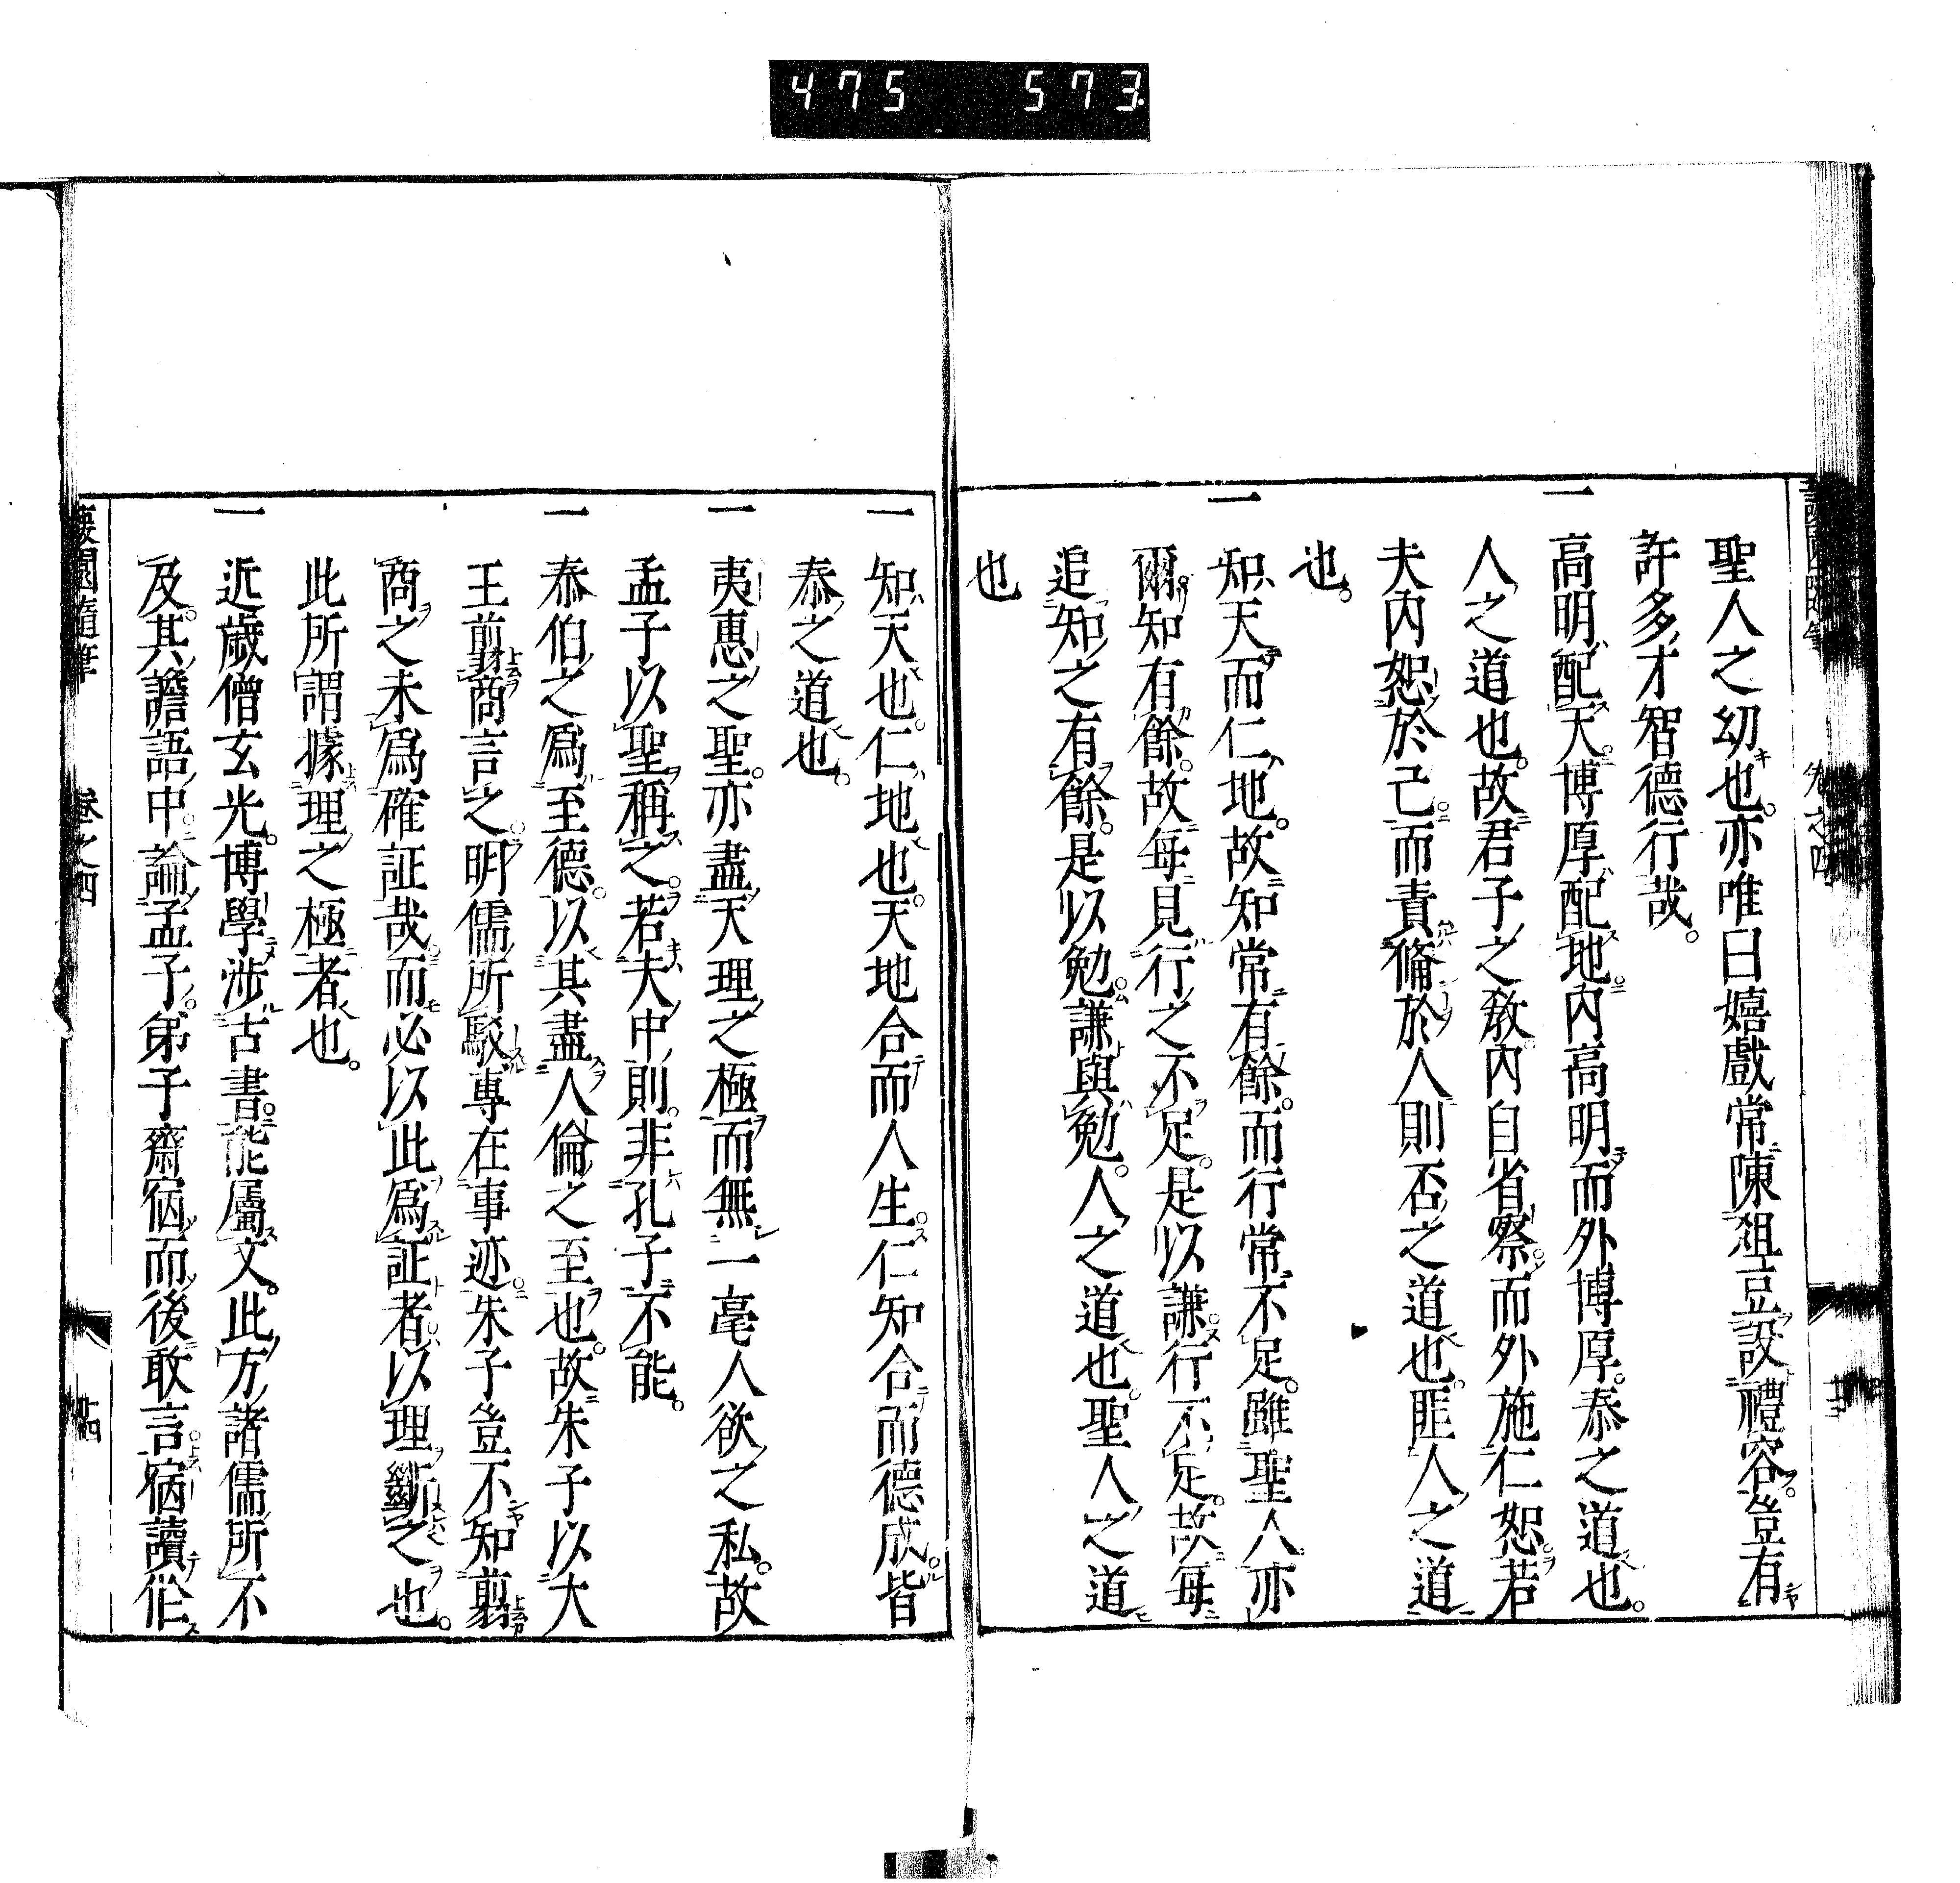 475 573
聖人之幼也。亦唯曰嬉戲常陳俎豆設禮容。豈有
許多才智德行哉。
一 高明配天。博厚配地。内高明而外博厚。泰之道也。
人之道也。故君子之教。内自省察。而外施仁恕。若
夫内恕於己。而責脩於人。則否之道也。匪人之道
也。
一 知天而仁地。故知常有餘。而行常不足。雖聖人亦
爾。知有餘。故每見行之不足。是以謙。行不足。故每
追知之有餘。是以勉。謙與勉。人之道也。聖人之道
也
一 知天也。仁地也。天地合而人生。仁知合而德成。皆
泰之道也。
一 夷惠之聖。亦盡天理之極。而無一毫人欲之私。故
孟子以聖稱之。若夫中則。非孔子不能。
一 泰伯之爲至德。以其盡人倫之至也。故朱子以大
王翦商言之。明儒所駁。專在事迹。朱子豈不知翦
商之未爲確証哉。而必以此爲証者。以理斷之也。
此所謂據理之極者也。
一 近歲僧玄光。博學涉古書。能屬文。此方諸儒所不
及。其譫語中。論孟子。弟子齋宿而後敢言。宿讀作
蘐園隨筆 卷之四 廿四